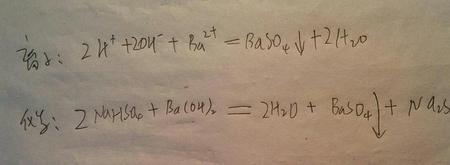 离子: 2H⁺+2OH⁻+Ba²⁺=BaSO₄↓+2H₂O
化学: 2NaHSO₄+Ba(OH)₂=2H₂O+BaSO₄↓+Na₂S